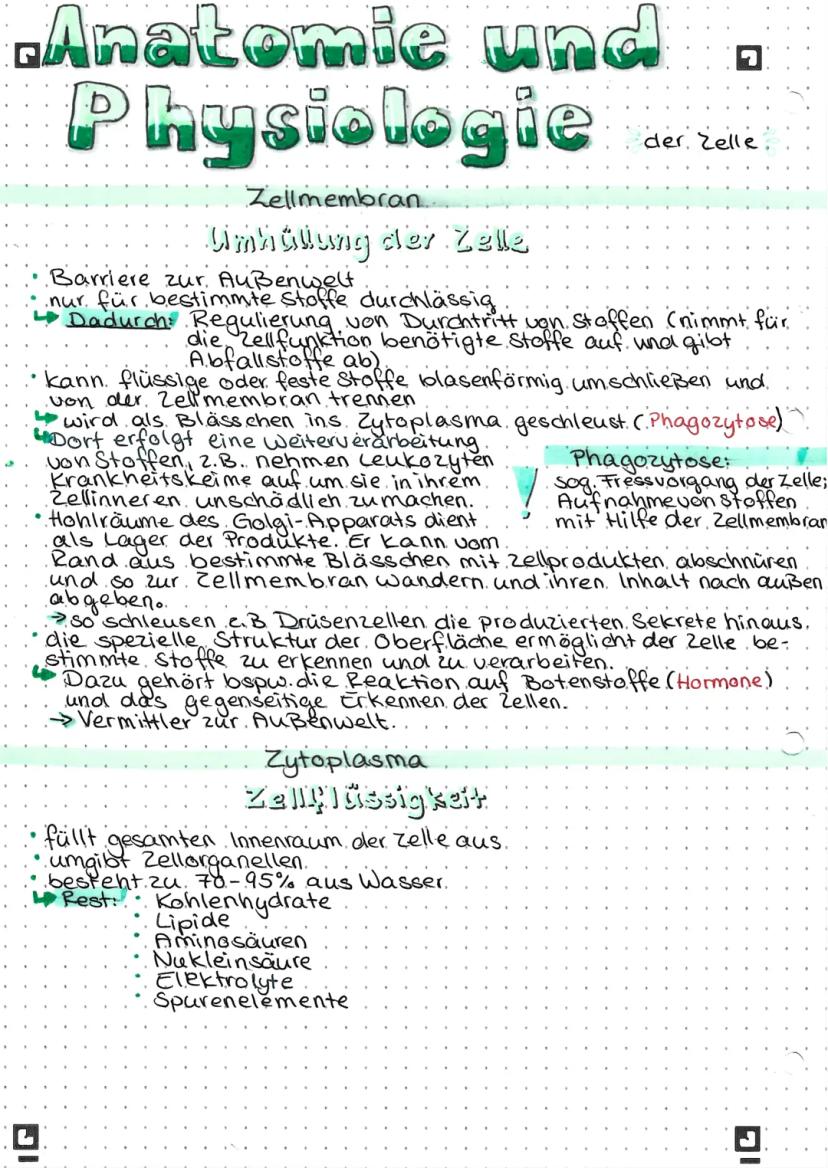 Anatomie und
Physiologie
der Zelle
Zellmembran
Umhüllung der Zelle
• Barriere zur Außenwelt
• nur für bestimmte Stoffe durchlässig
↳ Dadurch: Regulierung von Durchtritt von Stoffen (nimmt für
die Zellfunktion benötigte Stoffe auf und gibt
Abfallstoffe ab)
• kann flüssige oder feste Stoffe blasenförmig umschließen und
von der Zellmembran trennen
↳ wird als Blässchen ins Zytoplasma geschleust (Phagozytose)
↳ Dort erfolgt eine Weiterverarbeitung
von Stoffen, z.B. nehmen Leukozyten
Krankheitskeime auf um sie in ihrem
Zellinneren unschädlich zu machen.
! Phagozytose:
sog. Fressvorgang der Zelle;
Aufnahme von Stoffen
mit Hilfe der Zellmembran
• Hohlräume des Golgi-Apparats dient
als Lager der Produkte. Er kann vom
Rand aus bestimmte Blässchen mit Zellprodukten abschnüren
und so zur Zellmembran wandern und ihren Inhalt nach außen
abgeben.
→ so schleusen z.B Drüsenzellen die produzierten Sekrete hinaus.
• die spezielle Struktur der Oberfläche ermöglicht der Zelle be-
stimmte Stoffe zu erkennen und zu verarbeiten.
↳ Dazu gehört bspw. die Reaktion auf Botenstoffe (Hormone)
und das gegenseitige Erkennen der Zellen.
→ Vermittler zur Außenwelt.
Zytoplasma
Zellflüssigkeit
• füllt gesamten Innenraum der Zelle aus
• umgibt Zellorganellen
• besteht zu 70-95% aus Wasser
↳ Rest: • Kohlenhydrate
• Lipide
• Aminosäuren
• Nukleinsäure
• Elektrolyte
• Spurenelemente